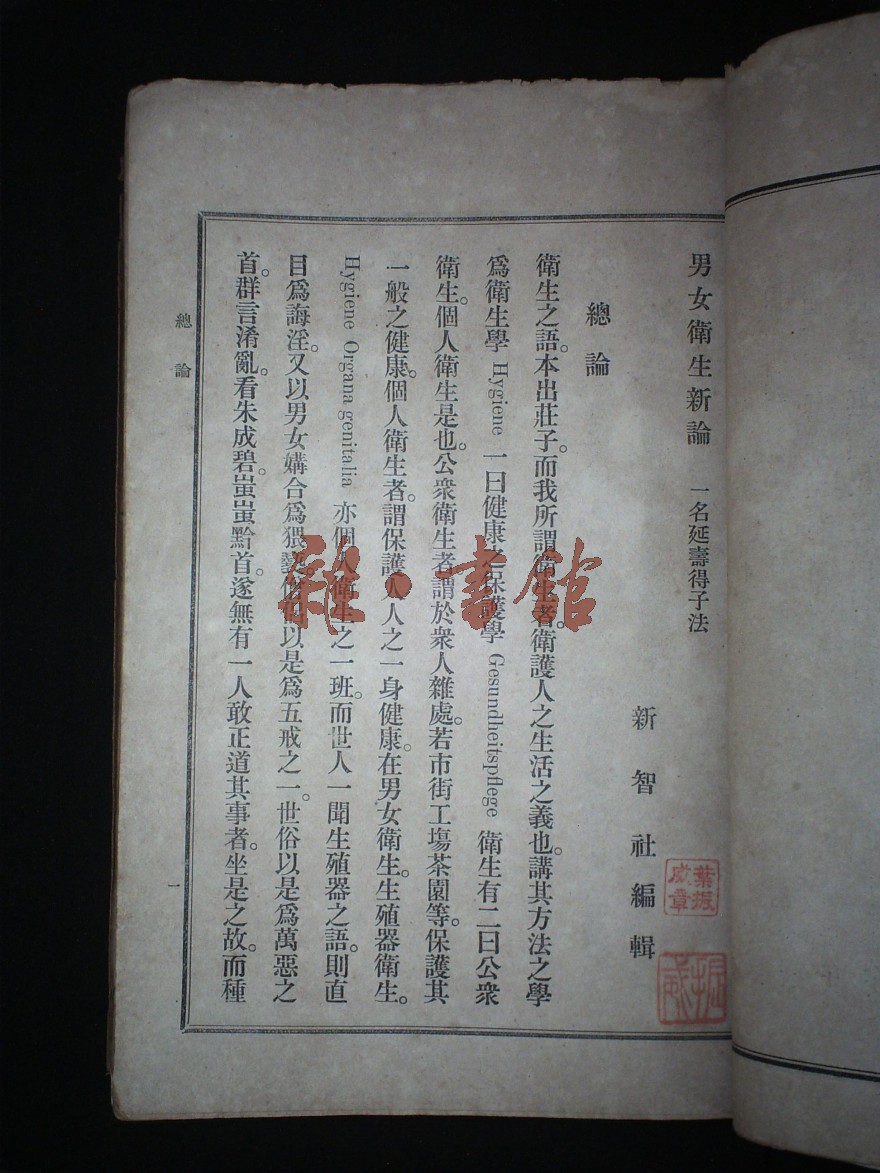 男女衛生新論　一名延壽得子法
新智社編輯
總論
衛生之語。本出莊子。而我所謂衛生者。衛護人之生活之義也。講其方法之學
爲衛生學 Hygiene 一曰健康之保護學 Gesundheitspflege 衛生有二曰公衆
衛生。個人衛生是也。公衆衛生者謂於衆人雜處。若市街工塲茶園等。保護其
一般之健康。個人衛生者。謂保護人人之一身健康。在男女衛生。生殖器衛生。
Hygiene Organa genitalia 亦個人衛生之一班。而世人一聞生殖器之語。則直
目爲誨淫。又以男女媾合爲猥褻。僧侶以是爲五戒之一。世俗以是爲萬惡之
首。群言淆亂。看朱成碧。蚩蚩黔首。遂無有一人敢正道其事者。坐是之故。而種
總論
一
葉振
成章
雜·書館